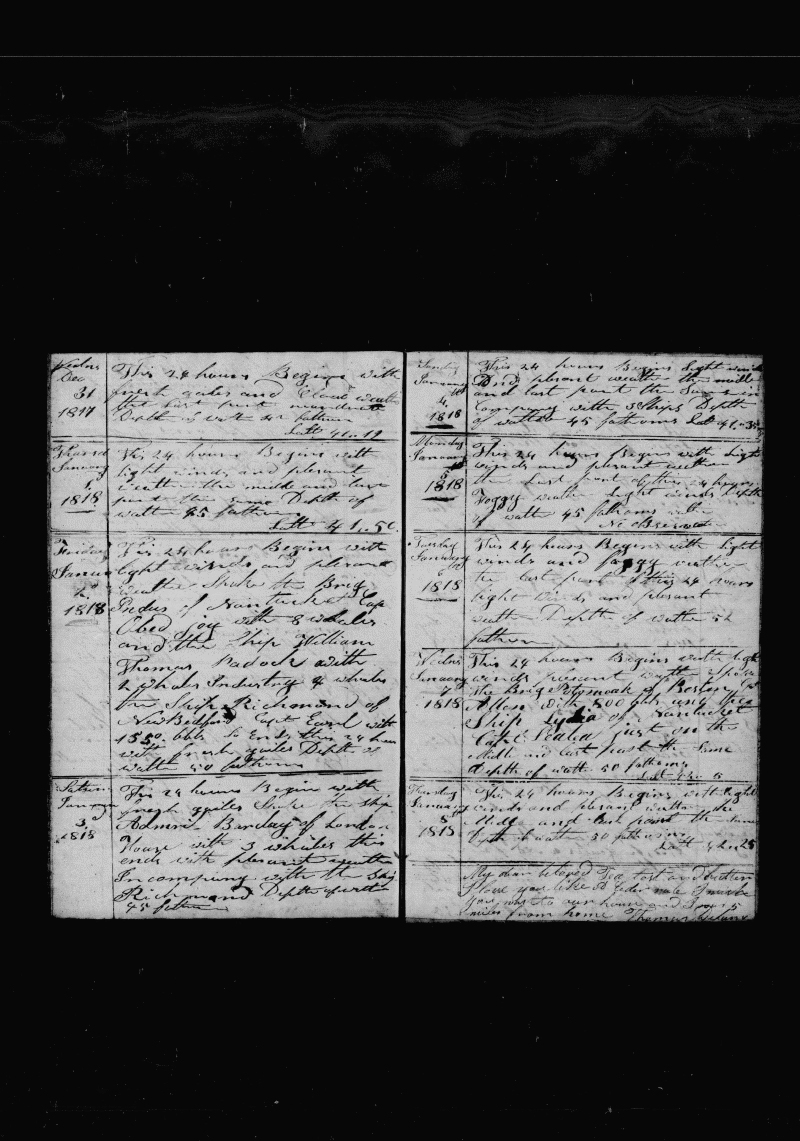 Wednes
Dec
31
1817
This 24 hours Begins with
fresh gales and Cloud weather
the last part moderate
Depth of wath 42 fathom
Latt 41..19
Thursd
January
1
1818
This 24 hours Begins with
light winds and plesent
weather the midle and last
part the same Depth of
wath 45 fathom
Latt 41..50
Friday
January
2
1818
This 24 hours Begins with
light winds and plesent
weather Spoke the Brig
Indus of Nantucket Cap
Obed Joy with 8 whales
and the Ship William
Thomas Padock with
2 whales Industry 4 whales
the Ship Richmond of
New Bedford Capt Earl with
1550 bbls So Ends this 24 hours
with fresh gales Depth of
wath 50 fathoms
Saturn
January
3
1818
This 24 hours Begin with
fresh gales Spoke the ship
Admiral Barclay of London
with 3 whales this
ends with plesent weather
In compiny with the Ship
Richmond Depth of water
45 fathom
Sunday
January
4
1818
This 24 hours Begins Light winds
And plesent weath the midle
and last part the Same in
Company with 3 Ships Depth
of wath 45 fathoms Latt 41..35
Monday
January
5
1818
This 24 hours Begins with Light
winds and plesent weather
the Last part of this 24 hours
Foggy weather Light winds Depth
of wath 45 fathoms
No Observed
Tuesday
January
6
1818
This 24 hours Begins with Light
winds and foggy weather
the last part of this 24 hours
light winds and plesent
weath Depth of wathe 52
fathom
Wednes
January
7
1818
This 24 hours Begins with light
winds plesent wath Spoke
the Brig of Boston
Allen with 800 bbls and the
Ship Lydia of Nantucket
Capt just on the
Midle and last part the Same
depth of wath 50 fathoms
Thursday
January
8
1818
This 24 hours Begins with light
winds and plesent wathe the
Midle and last part the same
Depth of wath 50 fathoms
Latt 42..25
My dear beloved
you like
to our house and
miles from home Thomas